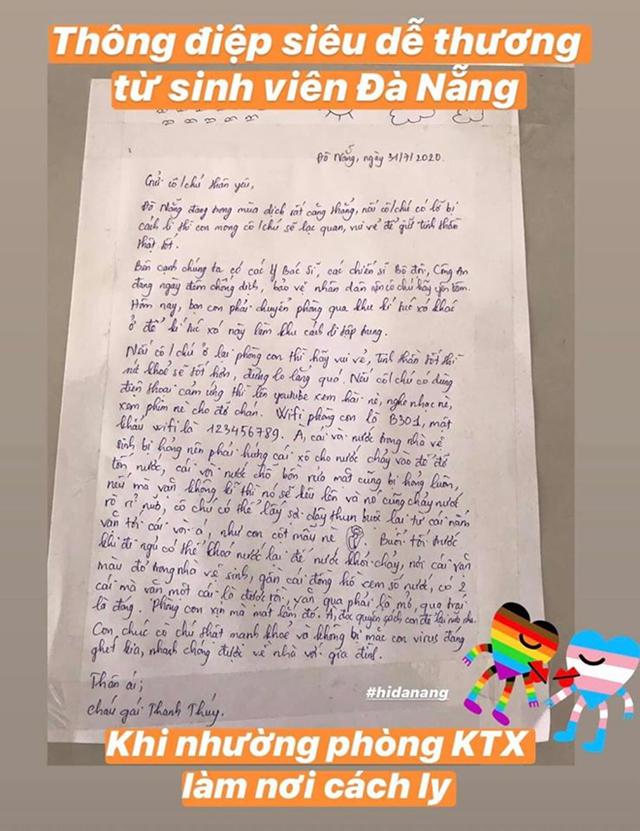 Thông điệp siêu dễ thương
từ sinh viên Đà Nẵng
Đà Nẵng, ngày 31/7/2020.
Gửi cô/chú thân yêu,
Đà Nẵng đang trong mùa dịch rất căng thẳng, nếu cô/chú có lỡ bị
cách li thì con mong cô/chú sẽ lạc quan, vui vẻ để giữ tinh thần
thật tốt.
Bên cạnh chúng ta có các Y Bác Sĩ, các chiến sĩ Bộ đội, Công An
đang ngày đêm chống dịch, bảo vệ nhân dân nên cô chú hãy yên tâm.
Hôm nay, bọn con phải chuyển phòng qua khu kí túc xá khác
ở để kí túc xá này làm khu cách li tập trung.
Nếu cô/chú ở lại phòng con thì hãy vui vẻ, tinh thần tốt thì
sức khoẻ sẽ tốt hơn, đừng lo lắng quá. Nếu cô/chú có dùng
điện thoại cảm ứng thì lên youtube xem hài nè, nghe nhạc nè,
xem phim nè cho đỡ chán. Wifi phòng con là B301, mật
khẩu wifi là 123456789. À, cái vòi nước trong nhà vệ
sinh bị hỏng nên phải hứng cái xô cho nước chảy vào đó để đỡ
tốn nước, cái vòi nước chỗ bồn rửa mặt cũng bị hỏng luôn,
nếu mà vặn không kĩ thì nó sẽ kêu lên và nó cũng chảy nước
rò rỉ nữa, cô chú có thể lấy sợi dây thun buộc lại từ cái nắm
vặn tới cái vòi á, như con cột mẫy nè Buổi tối trước
khi đi ngủ có thể khoá nước lại để nước khỏi chảy, nơi cái van
màu đỏ trong nhà vệ sinh, gần cái đồng hồ xem số nước, có 2
cái mà vặn một cái là được rồi, vặn qua phải là mở, qua trái
là đóng. Phòng con xịn mà mát lắm đó. À, đọc quyển sách con để lại nữa nha.
Con chúc cô chú thật mạnh khoẻ và không bị mắc con virus đáng
ghét kia, nhanh chóng được về nhà với gia đình.
Thân ái;
cháu gái Thanh Thúy.
#hidanang
Khi nhường phòng KTX
làm nơi cách ly